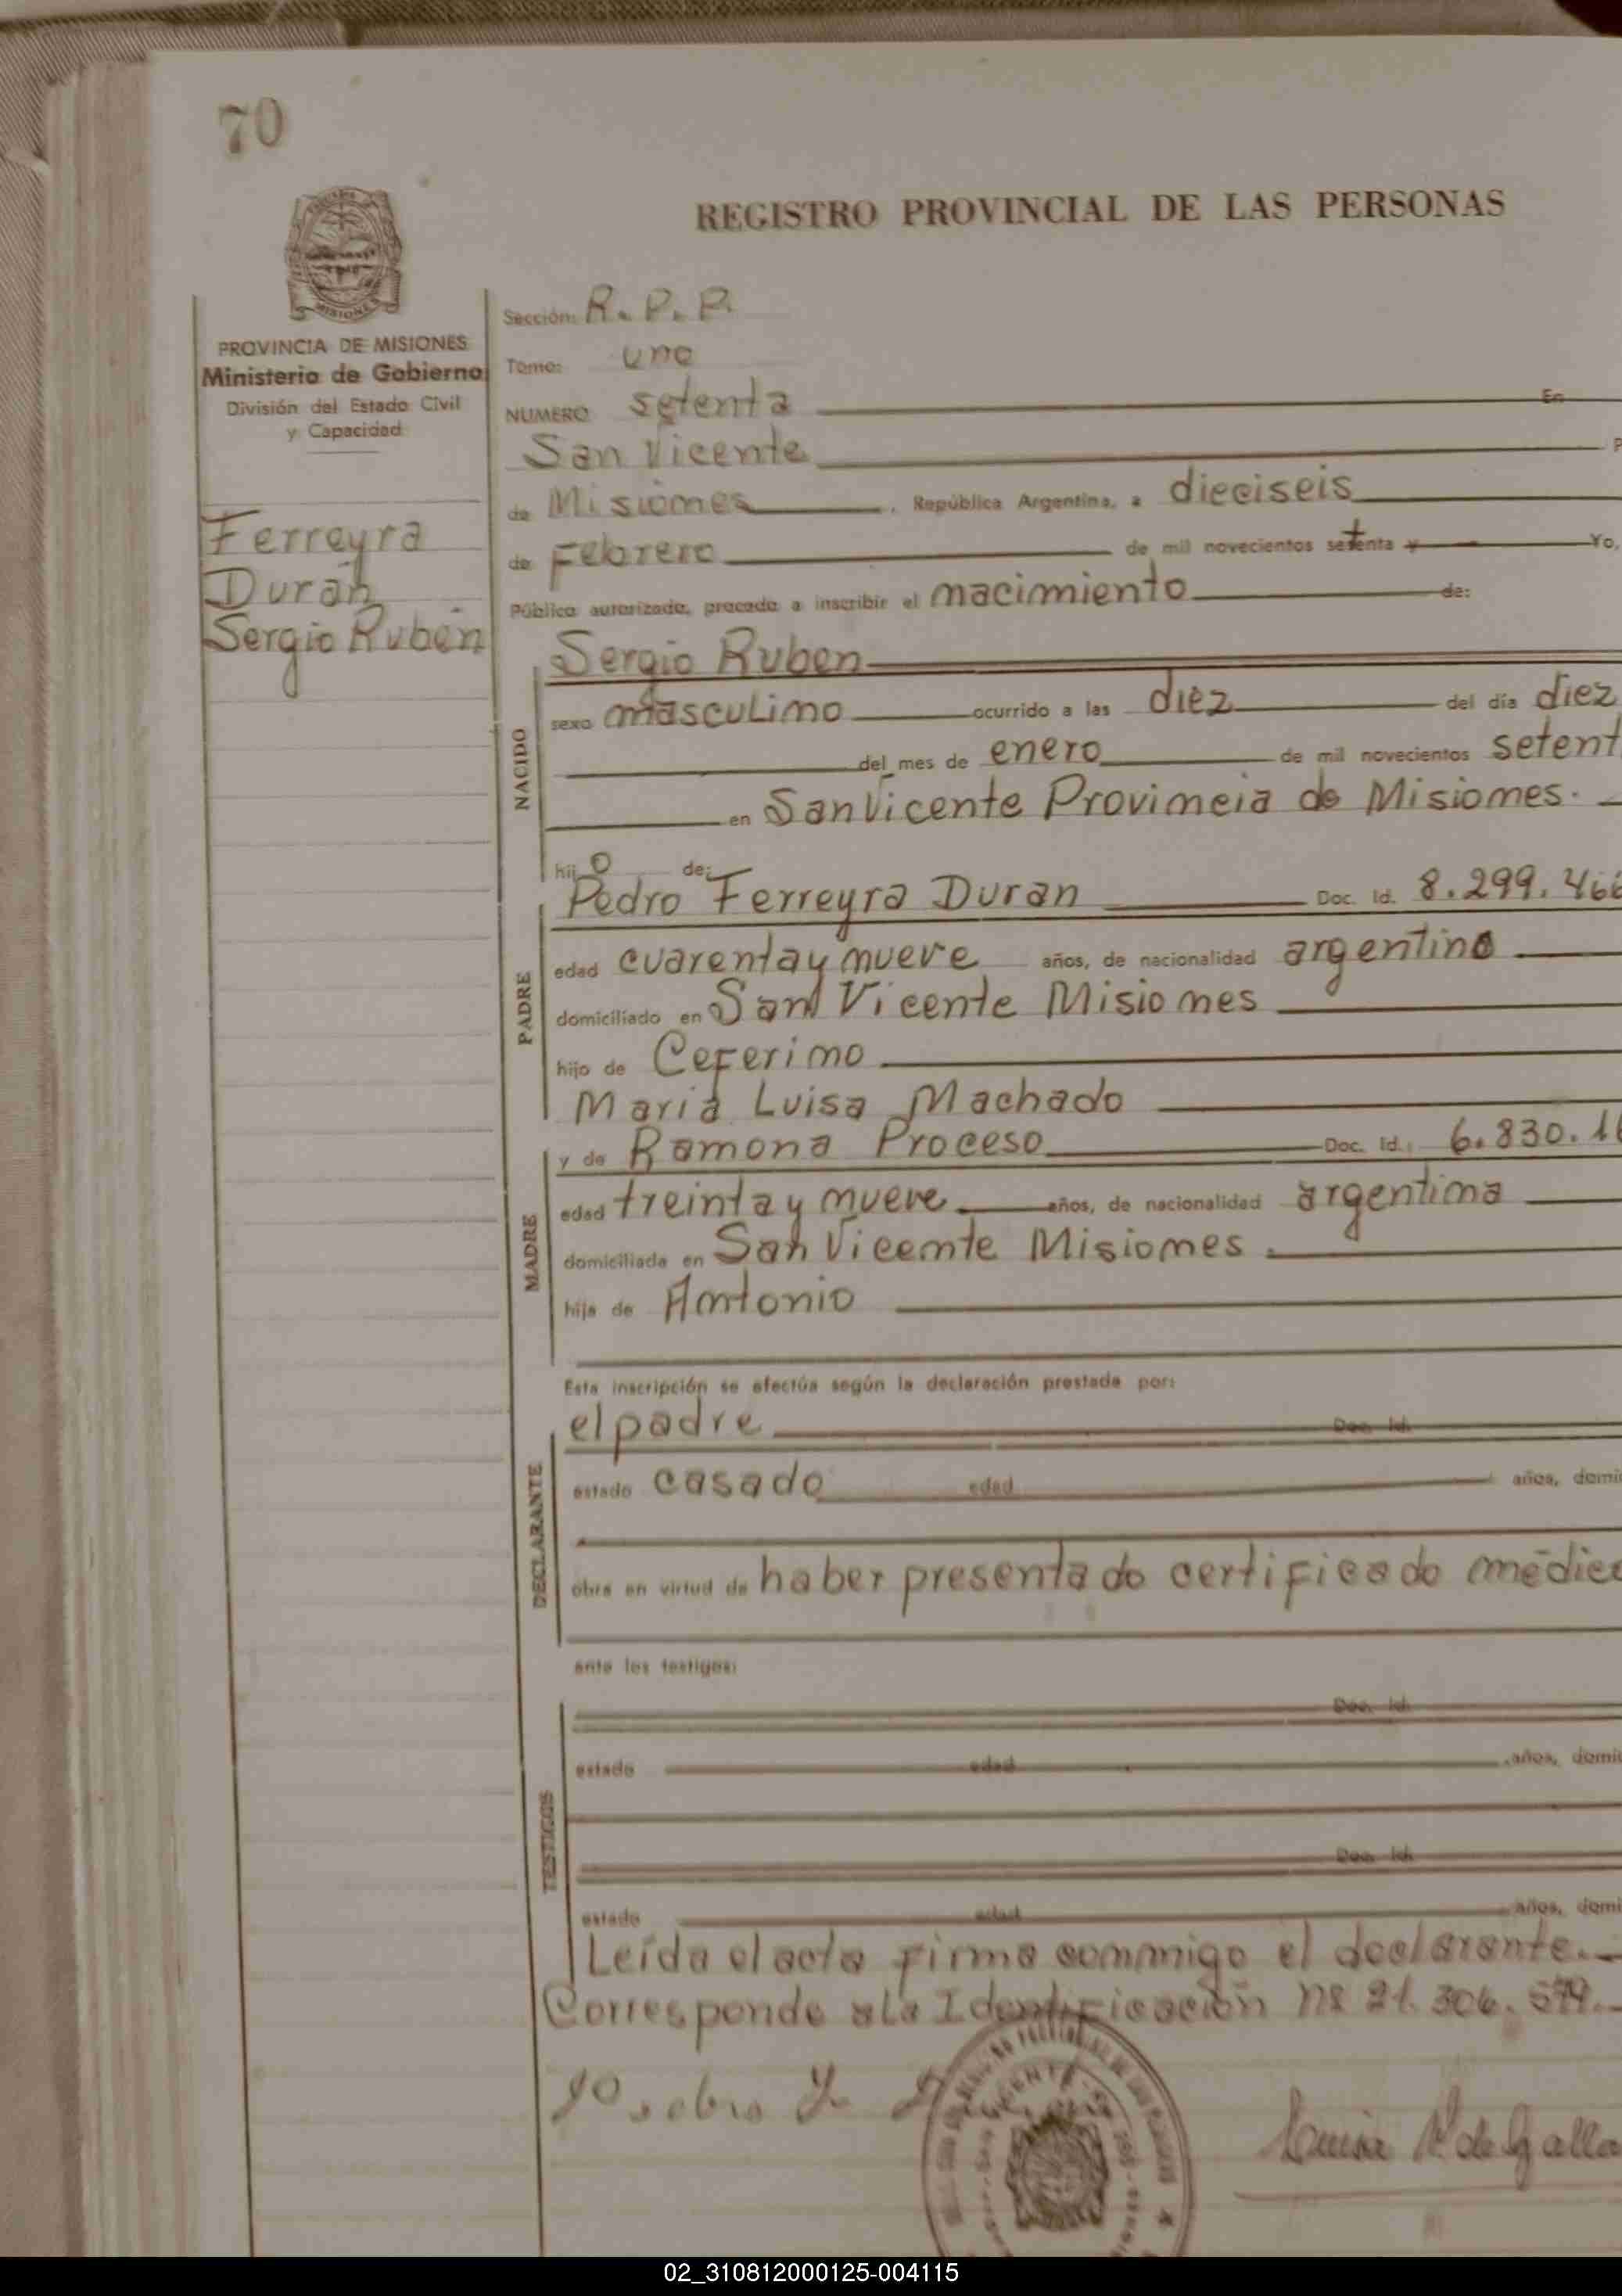 70
REGISTRO PROVINCIAL DE LAS PERSONAS
PROVINCIA DE MISIONES
Ministerio de Gobierno
División del Estado Civil
y Capacidad
Ferreyra
Durán
Sergio Rubén
Sección: R. P. P.
Tomo: uno
NUMERO setenta En
San Vicente
de Misiones, República Argentina, a dieciseis
de Febrero de mil novecientos setenta y Yo,
Público autorizado, procedo a inscribir el nacimiento de:
NACIDO
Sergio Ruben
sexo masculino ocurrido a las diez del día diez
del mes de enero de mil novecientos setent
en San Vicente Provincia de Misiones.
hijo de:
PADRE
Pedro Ferreyra Duran Doc. Id. 8.299.466
edad cuarenta y nueve años, de nacionalidad argentino
domiciliado en San Vicente Misiones
hijo de Ceferino
Maria Luisa Machado
MADRE
y de Ramona Proceso Doc. Id.: 6.830.1
edad treinta y nueve años, de nacionalidad argentina
domiciliada en San Vicente Misiones.
hija de Antonio
Esta inscripción se efectúa según la declaración prestada por:
DECLARANTE
el padre Doc. Id.
estado casado edad años, domi
obra en virtud de haber presentado certificado médic
ante los testigos:
TESTIGOS
Doc. Id.
estado edad años, domi
Doc. Id.
estado edad años, domi
Leída el acta firma conmigo el declarante.
Corresponde a la Identificación nº 21.306.
Luisa de Galla
02_310812000125-004115